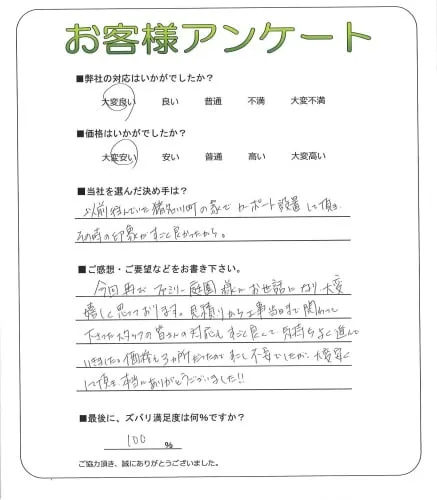 お客様アンケート
■弊社の対応はいかがでしたか？
大変良い 良い 普通 不満 大変不満
■価格はいかがでしたか？
大変安い 安い 普通 高い 大変高い
■当社を選んだ決め手は？
以前住んでいた猪名川町の家でカーポート設置して頂き
その時の印象がすごく良かったから。
■ご感想・ご要望などをお書き下さい。
今回再びファミリー庭園様にお世話になり、大変
嬉しく思っております。見積りから工事当日まで関わって
下さったスタッフの皆さんの対応もすごく良くて、気持ちよく進んで
いきました。価格も3ヶ所だったのですこし不安でしたが、大変安く
して頂き、本当にありがとうございました!!
■最後に、ズバリ満足度は何％ですか？
100 %
ご協力頂き、誠にありがとうございました。